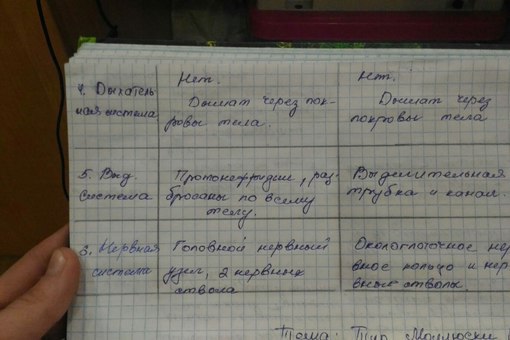 4. Дыхатель
ная система
Нет.
Дышат через пок-
ровы тела.
Нет.
Дышат через
покровы тела
5. Выд.
система
Протонефридии, раз-
бросаны по всему
телу.
Выделительная
трубка и канал.
6. Нервная
система
Головной нервный
узел, 2 нервных
ствола
Окологлоточное нер
вное кольцо и нер
вные стволы.
Тема: Тип Моллюски